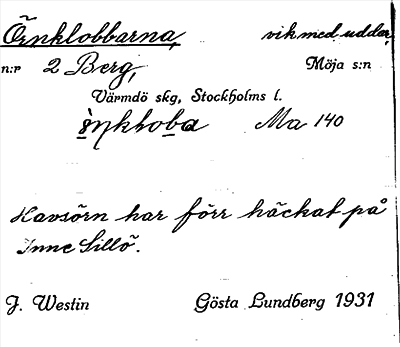 Örnklobbarna, vik med uddar,
n:r 2 Berg, Möja s:n
Värmdö skg, Stockholms l.
Ma 140
Havsörn har förr häckat på
Inne Lillö.
J. Westin Gösta Lundberg 1931